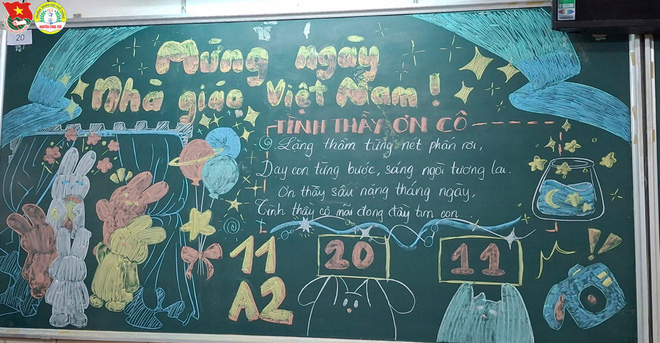 20
Mừng ngày
Nhà giáo Việt Nam!
TÌNH THẦY ƠN CÔ
Lặng thầm từng nét phấn rơi,
Dạy con từng bước, sáng ngời tương lai.
Ơn thầy sâu nặng tháng ngày,
Tình thầy cô mãi đong đầy tim con
11
A2
20
11